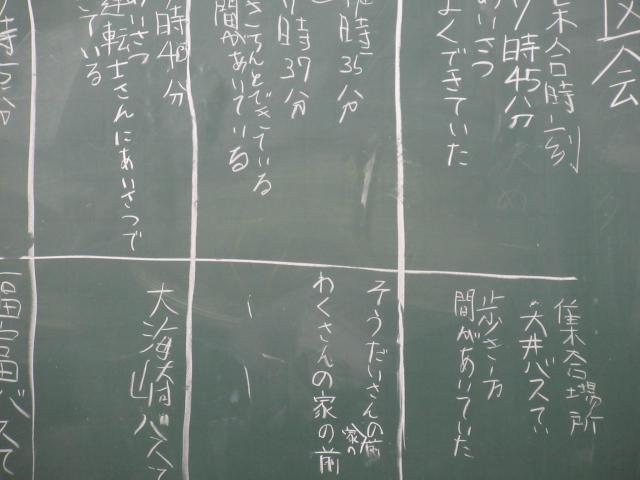 会
集合時刻
時45分
あいさつ
よくできていた
集合場所
大井バスてい
歩き方
間があいていた
時35分
時37分
きちんとできている
間があいている
そうだいさんの家の前
わくさんの家の前
時40分
あいさつ
運転士さんにあいさつで
ている
大海崎バスて
福富バスて